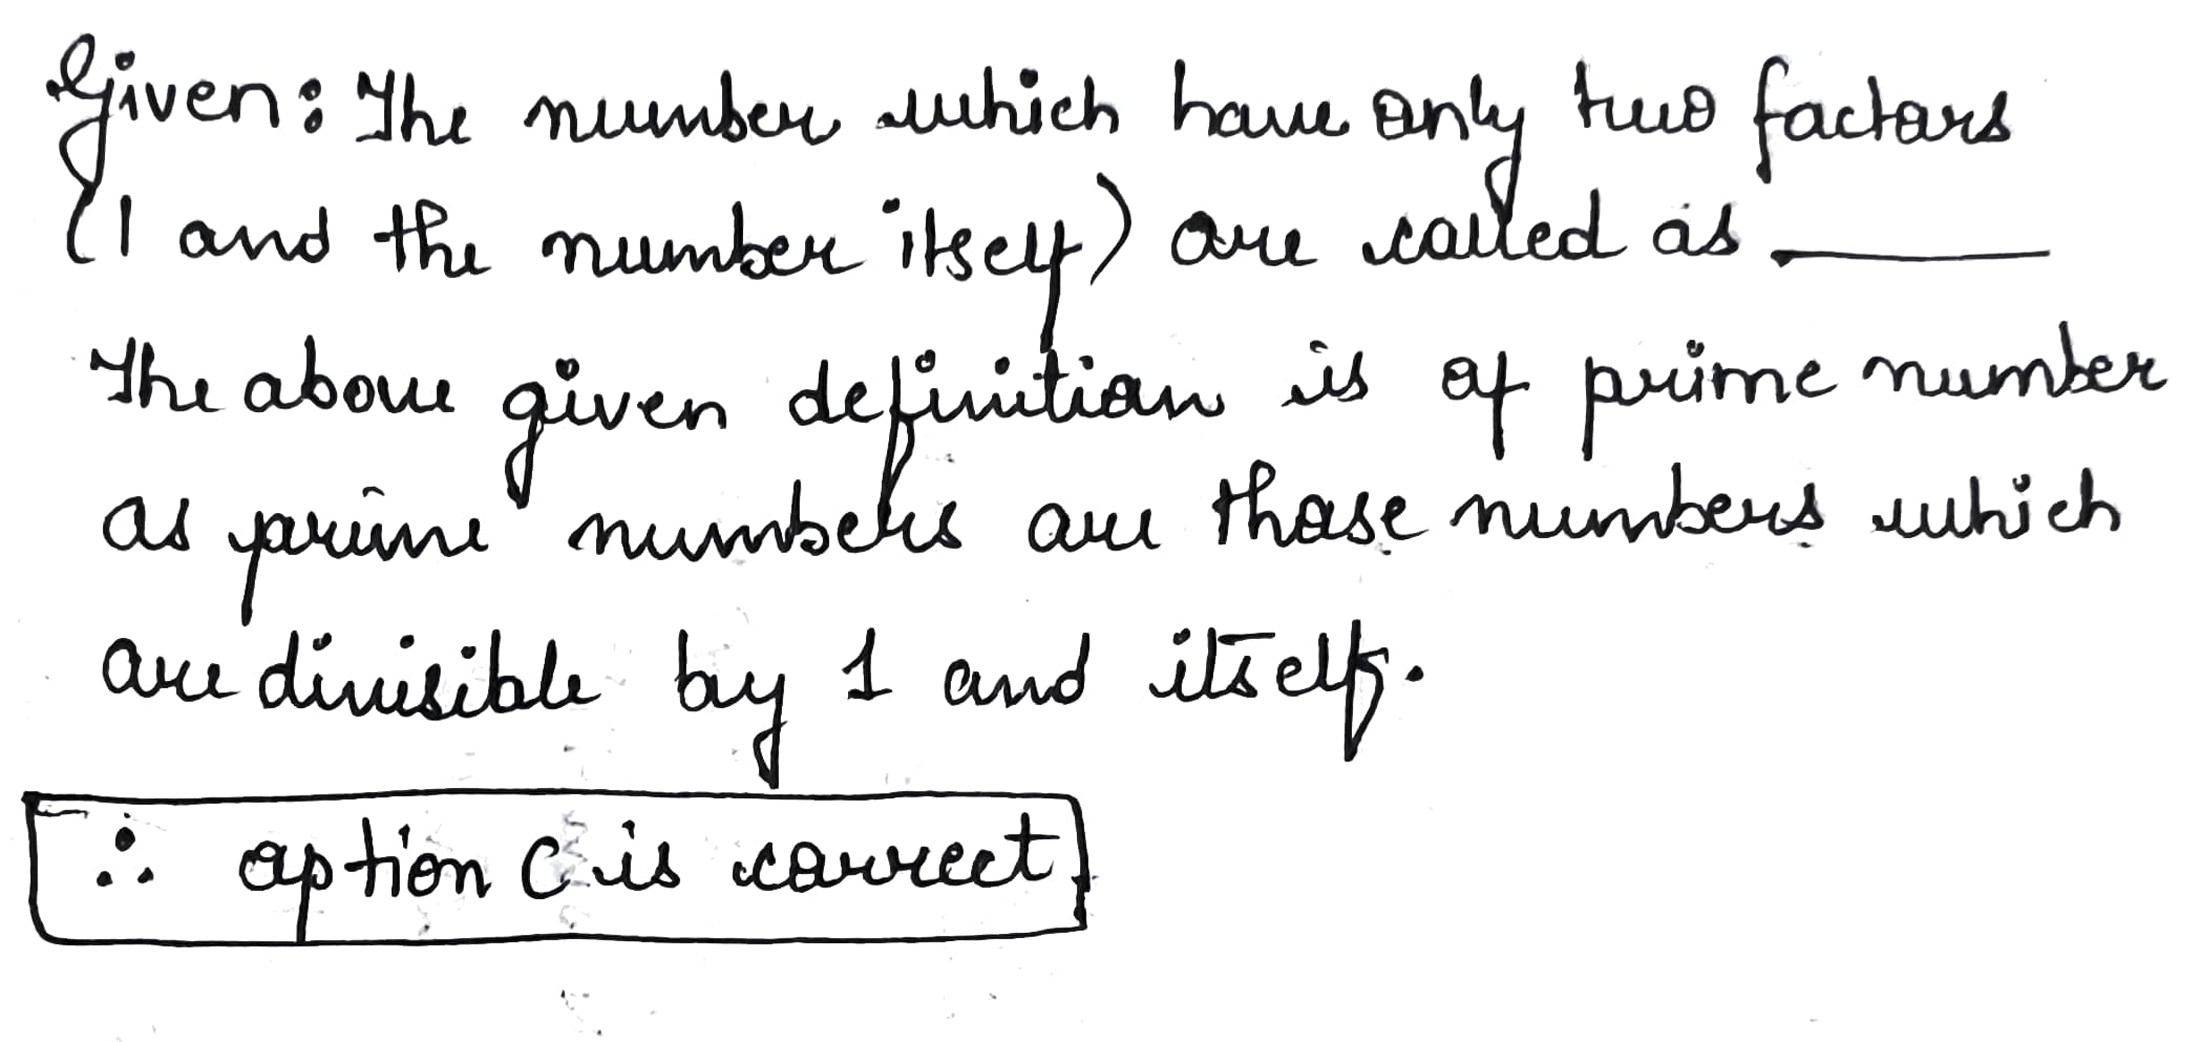 Given: The number which have only two factors
(1 and the number itself) are called as ______
The above given definition is of prime number
as prime numbers are those numbers which
are divisible by 1 and itself.
∴ option C is correct